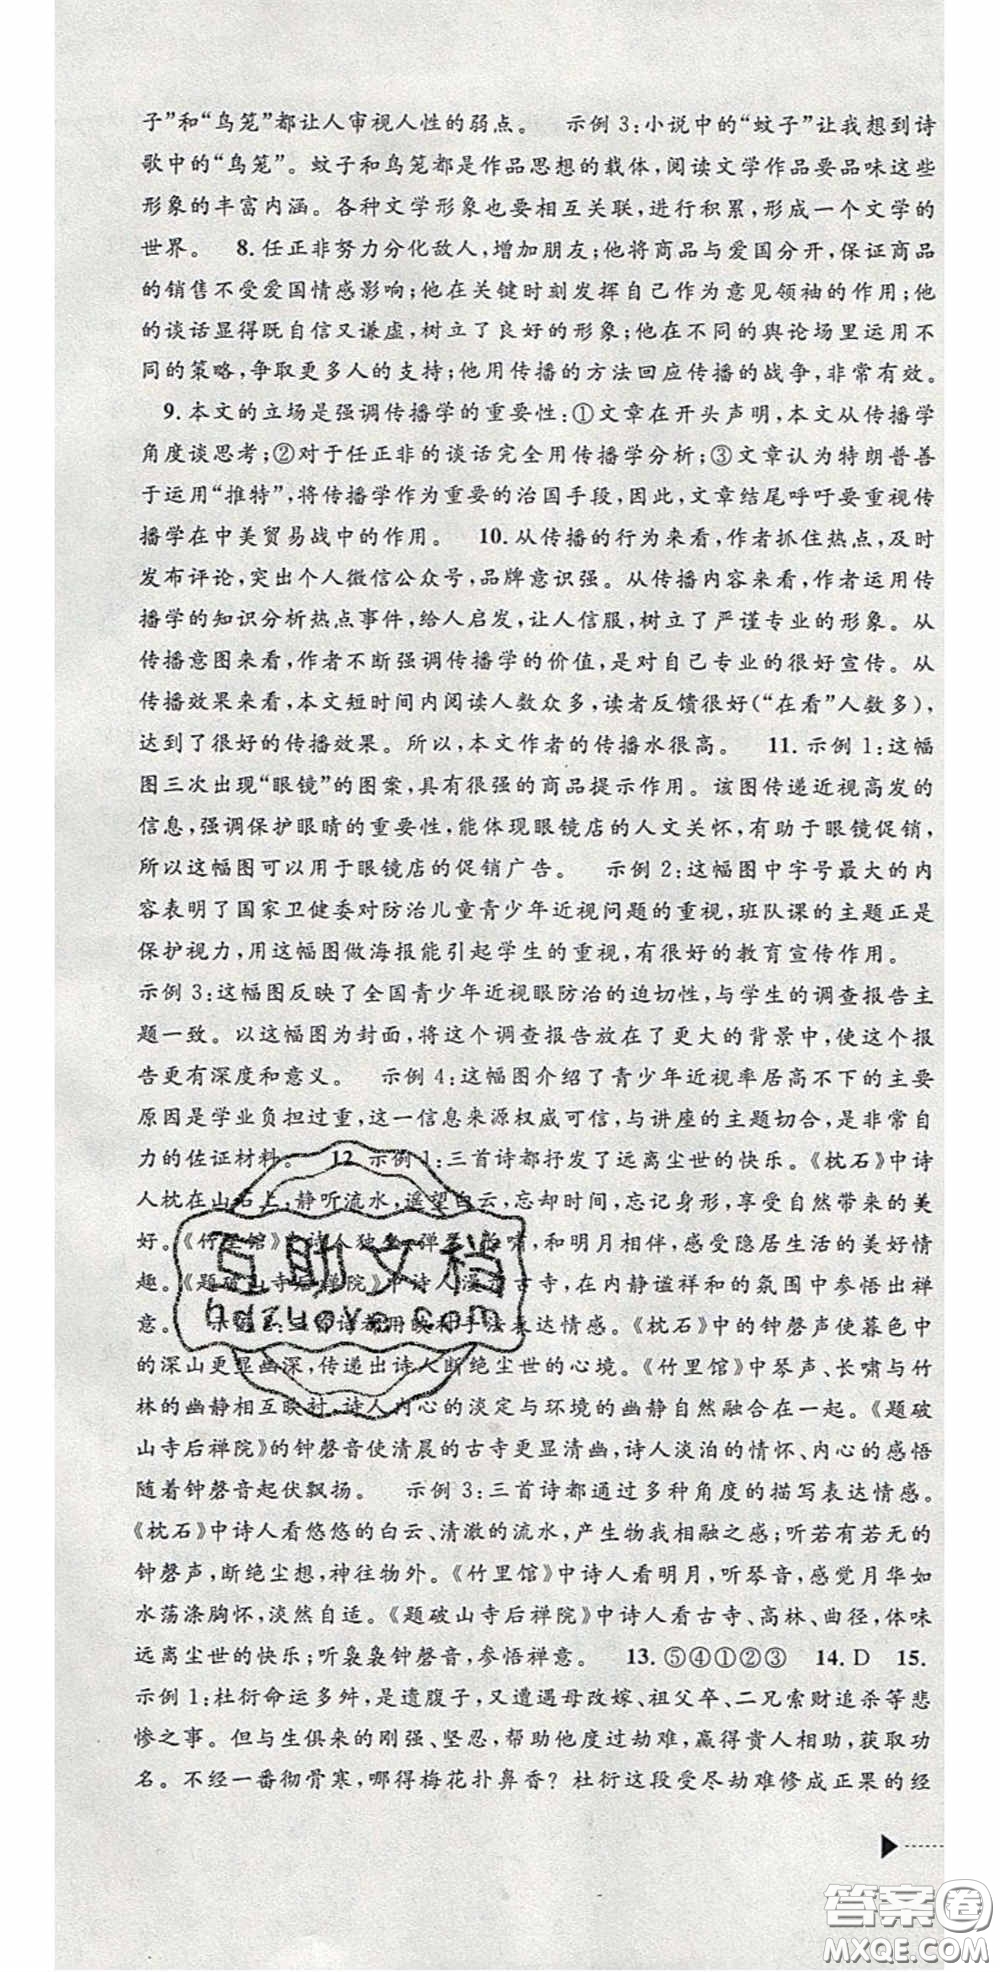 子”和“鸟笼”都让人审视人性的弱点。 示例 3:小说中的“蚊子”让我想到诗
歌中的“鸟笼”。蚊子和鸟笼都是作品思想的载体,阅读文学作品要品味这些
形象的丰富内涵。各种文学形象也要相互关联,进行积累,形成一个文学的
世界。 8. 任正非努力分化敌人,增加朋友;他将商品与爱国分开,保证商品
的销售不受爱国情感影响;他在关键时刻发挥自己作为意见领袖的作用;他
的谈话显得既自信又谦虚,树立了良好的形象;他在不同的舆论场里运用不
同的策略,争取更多人的支持;他用传播的方法回应传播的战争,非常有效。
9. 本文的立场是强调传播学的重要性:①文章在开头声明,本文从传播学
角度谈思考;②对于任正非的谈话完全用传播学分析;③文章认为特朗普善
于运用“推特”,将传播学作为重要的治国手段,因此,文章结尾呼吁要重视传
播学在中美贸易战中的作用。 10. 从传播的行为来看,作者抓住热点,及时
发布评论,突出个人微信公众号,品牌意识强。从传播内容来看,作者运用传
播学的知识分析热点事件,给人启发,让人信服,树立了严谨专业的形象。从
传播意图来看,作者不断强调传播学的价值,是对自己专业的很好宣传。从
传播效果来看,本文短时间内阅读人数众多,读者反馈很好(“在看”人数多),
达到了很好的传播效果。所以,本文作者的传播水很高。 11. 示例 1:这幅
图三次出现“眼镜”的图案,具有很强的商品提示作用。该图传递近视高发的
信息,强调保护眼睛的重要性,能体现眼镜店的人文关怀,有助于眼镜促销,
所以这幅图可以用于眼镜店的促销广告。 示例 2:这幅图中字号最大的内
容表明了国家卫健委对防治儿童青少年近视问题的重视,班队课的主题正是
保护视力,用这幅图做海报能引起学生的重视,有很好的教育宣传作用。
示例 3:这幅图反映了全国青少年近视眼防治的迫切性,与学生的调查报告主
题一致。以这幅图为封面,将这个调查报告放在了更大的背景中,使这个报
告更有深度和意义。 示例 4:这幅图介绍了青少年近视率居高不下的主要
原因是学业负担过重,这一信息来源权威可信,与讲座的主题切合,是非常自
力的佐证材料。 12. 示例 1:三首诗都抒发了远离尘世的快乐。《枕石》中诗
人枕在山石上,静听流水,遥望白云,忘却时间,忘记身形,享受自然带来的美
好。《竹里馆》中诗人独坐、弹琴、长啸,和明月相伴,感受隐居生活的美好情
趣。《题破山寺后禅院》中诗人漫步古寺,在内静谧祥和的氛围中参悟出禅
意。 示例 2:三首诗都用映衬手法表达情感。《枕石》中的钟磬声使暮色中
的深山更显幽深,传递出诗人断绝尘世的心境。《竹里馆》中琴声、长啸与竹
林的幽静相互映衬,诗人内心的淡定与环境的幽静自然融合在一起。《题破
山寺后禅院》的钟磬音使清晨的古寺更显清幽,诗人淡泊的情怀、内心的感悟
随着钟磬音起伏飘扬。 示例 3:三首诗都通过多种角度的描写表达情感。
《枕石》中诗人看悠悠的白云、清澈的流水,产生物我相融之感;听若有若无的
钟磬声,断绝尘想,神往物外。《竹里馆》中诗人看明月,听琴音,感觉月华如
水荡涤胸怀,淡然自适。《题破山寺后禅院》中诗人看古寺、高林、曲径,体味
远离尘世的快乐;听袅袅钟磬音,参悟禅意。 13. ⑤④①②③ 14. D 15.
示例 1:杜衍命运多舛,是遗腹子,又遭遇母改嫁、祖父卒、二兄索财追杀等悲
惨之事。但与生俱来的刚强、坚忍,帮助他度过劫难,赢得贵人相助,获取功
名。不经一番彻骨寒,哪得梅花扑鼻香?杜衍这段受尽劫难修成正果的经
互助文档
hdzuoye.com
答案圈
MXQE.COM